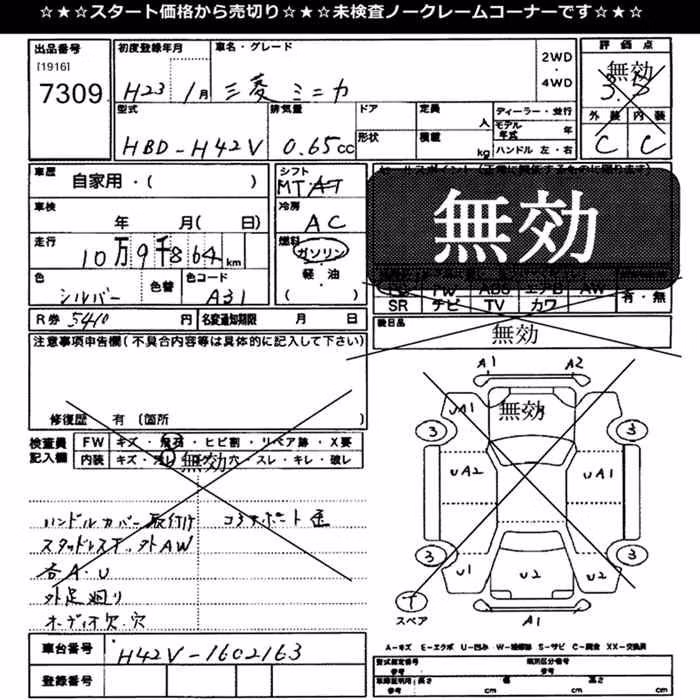 ☆★☆スタート価格から売切り☆★☆未検査ノークレームコーナーです☆★☆
出品番号
[1916]
7309
初度登録年月
H23 1月
車名・グレード
三菱 ミニカ
2WD
・
4WD
評価点
無効
3.5
外装 内装
C C
型式
HBD-H42V
排気量
0.65cc
ドア
形状
定員
人
積載
kg
ディーラー・並行
モデル年式 年
ハンドル 左・右
車歴
自家用・( )
シフト
MT.AT
車検
年 月( 日)
冷房
AC
走行
10万9千864km
燃料
ガソリン
・
軽・油
( )
色
シルバー
色替
色コード
A31
R券 5410 円
名変通知期限 月 日
無効
SR ナビ TV カワ
有・無
後日品
無効
注意事項申告欄(不具合内容等は具体的に記入して下さい)
修復歴 有 (箇所 )
検査員記入欄
FW キズ・飛石・ヒビ割・リペア跡・X要
内装 キズ・汚レ・穴・スレ・キレ・破レ
無効
ハンドルカバー取付け
スタッドレス 外AW
各A.U
外足廻り
オーディオ欠.穴
車台番号
H42V-1602163
登録番号
A1 A2
UA1
無効
3 3
UA2 UA1
3 3
U1 U2 U2
T
スペア
A1
A-キズ E-エクボ U-凹み W-補修跡 S-サビ C-腐食 XX-交換済
型式指定番号
参考
類別区分番号
参考
長さ cm
幅 cm
高さ cm